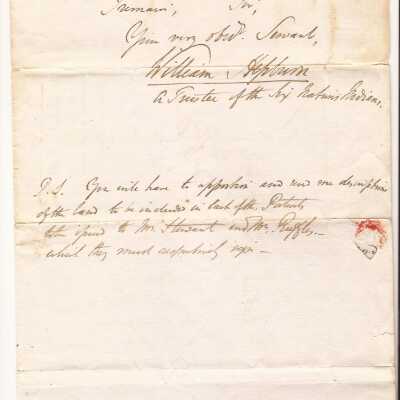 remain, Sir,
Your very obdt. Servant,
William Hepburn
A Trustee of the Six Nations Indians.
P.S. You will have to apportion and send me descriptions
of the land to be included in each of the Patents
to be issued to Mr. Stewart and Mr. Ruggles,
which they must respectively